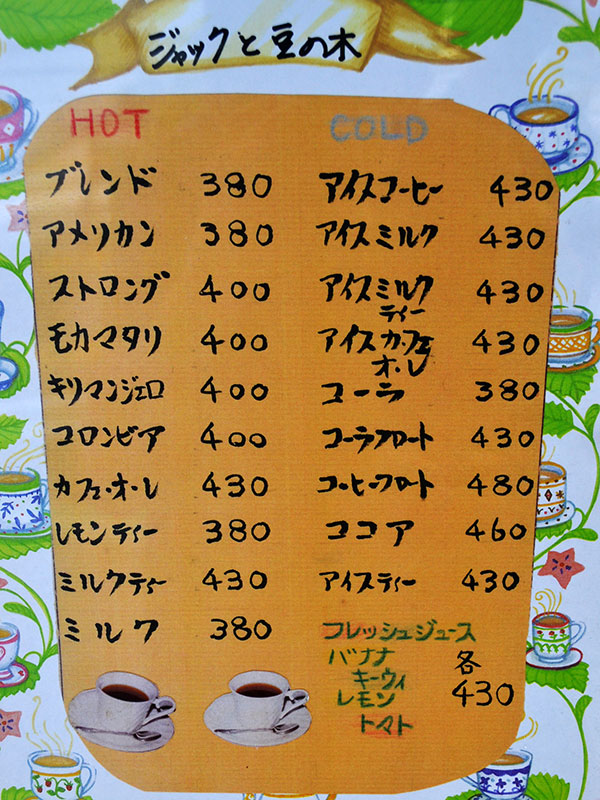 ジャックと豆の木
HOT
ブレンド 380
アメリカン 380
ストロング 400
モカマタリ 400
キリマンジェロ 400
コロンビア 400
カフェ・オ・レ 430
レモンティー 380
ミルクティー 430
ミルク 380
COLD
アイスコーヒー 430
アイスミルク 430
アイスミルク 430
ティー
アイスカフェ 430
オ・レ
コーラ 380
コーラフロート 430
コーヒーフロート 480
ココア 460
アイスティー 430
フレッシュジュース
バナナ 各
キーウィ
レモン 430
トマト